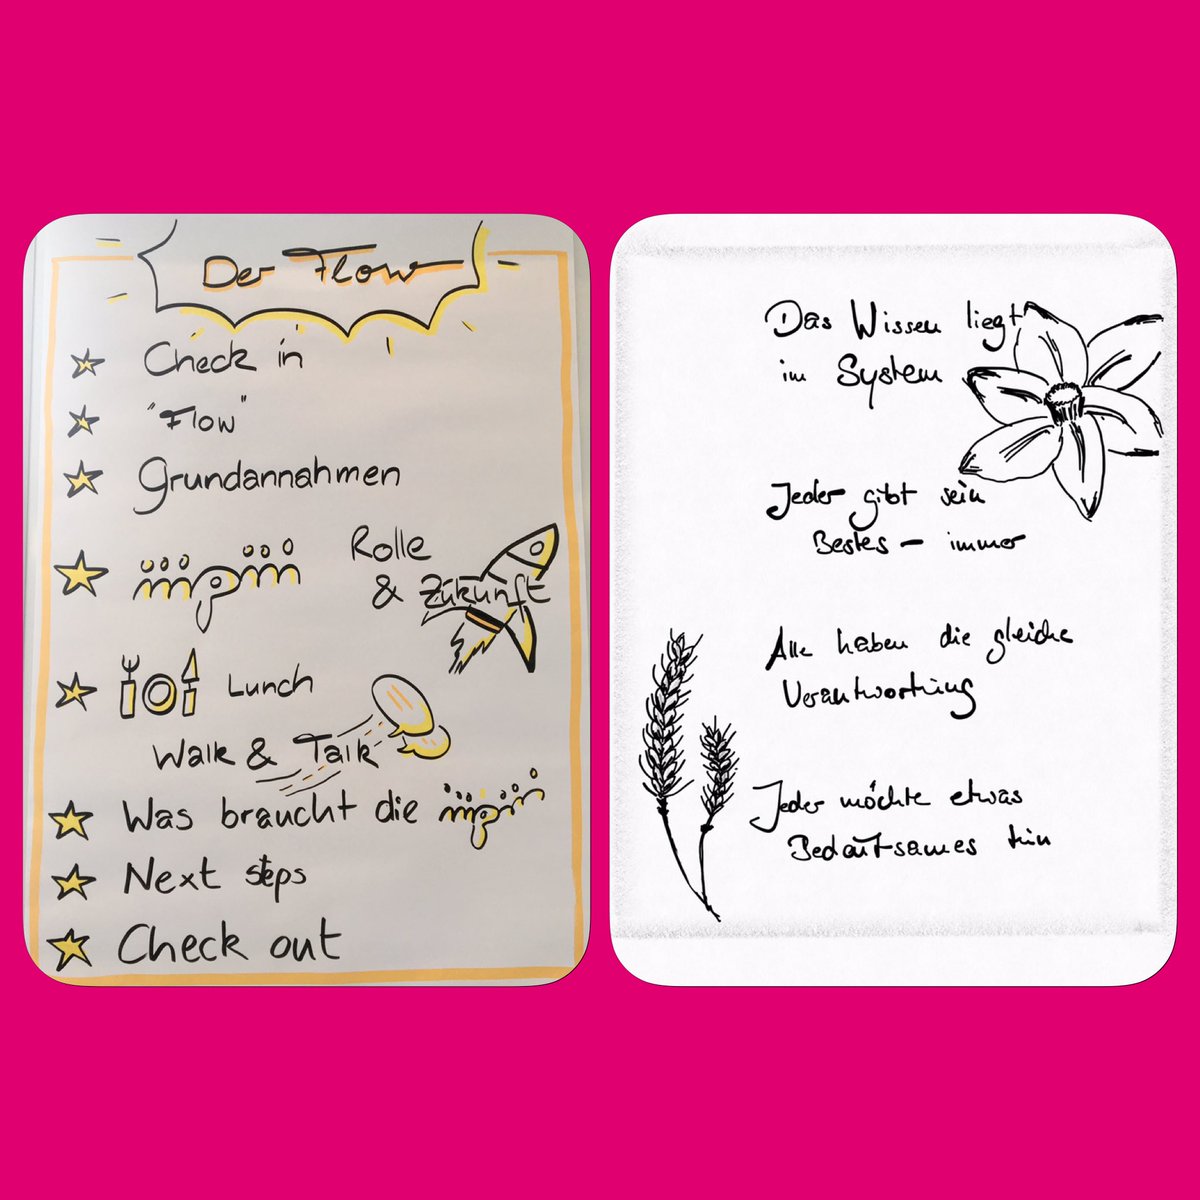 Der Flow
Check in
"Flow"
Grundannahmen
mpm Rolle
& Zukunft
Lunch
Walk & Talk
Was braucht die mpm
Next steps
Check out
Das Wissen liegt
im System
Jeder gibt sein
Bestes – immer
Alle haben die gleiche
Verantwortung
Jeder möchte etwas
Bedeutsames tun